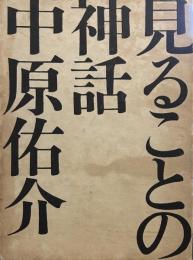 見ることの
神話
中原佑介